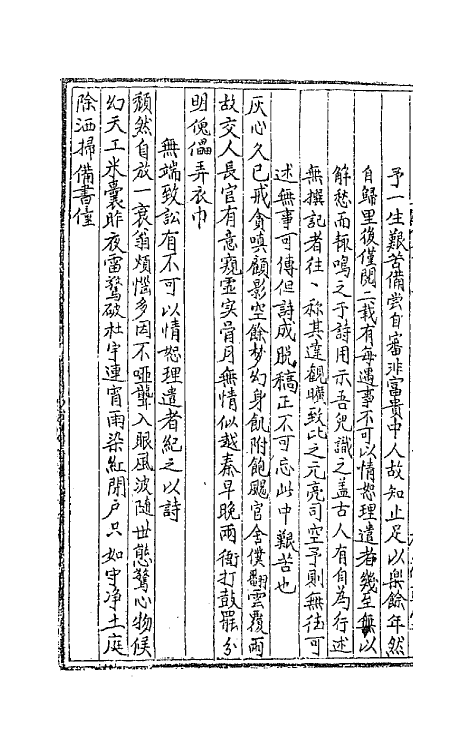 予一生艱苦備嘗自審非富貴中人故知止足以樂餘年然
自歸里後僅閱二載有每遇事不可以情恕理遣者幾至無以
解愁而輒鳴之于詩用示吾兒識之盖古人有自為行述
無撰記者往〻稱其達觀曠致比之元亮司空予則無徃可
述無事可傳但詩成脱稿正不可忘此中艱苦也
灰心久已戒貪嗔顧影空餘梦幻身飢附飽颺官舍僕翻雲覆雨
故交人長官有意窺虛实骨月無情似越秦早晚兩衙打鼓罷分
明傀儡弄衣巾
無端致訟有不可以情恕理遣者紀之以詩
頽然自放一衰翁煩惱多因不啞聾入眼風波隨世態驚心物候
幻天工米囊昨夜雷驚破杜宇連宵雨染紅閉户只如宇净土庭
除洒掃備書僮